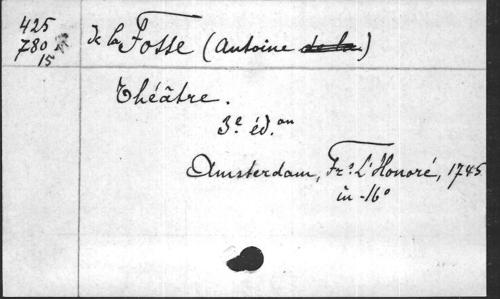 425
780
15
de la Fosse (Antoine de la)
Théâtre.
3e éd.on
Amsterdam, Frs L'Honoré, 1745
in-16o